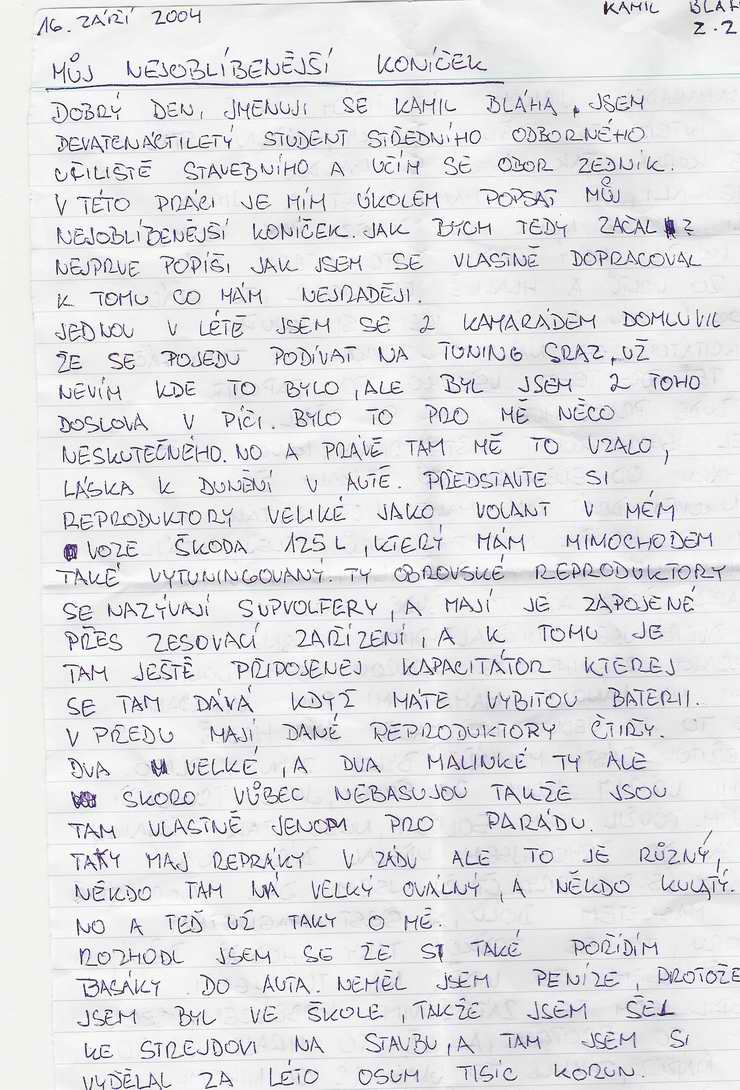 16. ZÁŘÍ 2004
KAMIL BLÁH
Z.2
MŮJ NEJOBLÍBENĚJŠÍ KONÍČEK
DOBRÝ DEN, JMENUJI SE KAMIL BLÁHA, JSEM
DEVATENÁCTILETÝ STUDENT STŘEDNÍHO ODBORNÉHO
UČILIŠTĚ STAVEBNÍHO A UČÍM SE OBOR ZEDNÍK.
V TÉTO PRÁCI JE MÍM ÚKOLEM POPSAT MŮJ
NEJOBLÍBENĚJŠÍ KONÍČEK. JAK BYCH TEDY ZAČAL ?
NEJPRVE POPÍŠI JAK JSEM SE VLASTNĚ DOPRACOVAL
K TOMU CO MÁM NEJRADĚJI.
JEDNOU V LÉTĚ JSEM SE Z KAMARÁDEM DOMLUVIL
ŽE SE POJEDU PODÍVAT NA TUNING SRAZ, UŽ
NEVÍM KDE TO BYLO, ALE BYL JSEM Z TOHO
DOSLOVA V PÍČI. BYLO TO PRO MĚ NĚCO
NESKUTEČNÉHO. NO A PRÁVĚ TAM MĚ TO VZALO,
LÁSKA K DUNĚNÍ V AUTĚ. PŘEDSTAVTE SI
REPRODUKTORY VELIKÉ JAKO VOLANT V MÉM
VOZE ŠKODA 125 L, KTERÝ MÁM MIMOCHODEM
TAKÉ VYTUNINGOVANÝ. TY OBROVSKÉ REPRODUKTORY
SE NAZÝVAJÍ SUPVOLFERY, A MAJÍ JE ZAPOJENÉ
PŘES ZESOVACÍ ZAŘÍZENÍ, A K TOMU JE
TAM JEŠTĚ PŘIPOJENEJ KAPACITÁTOR KTEREJ
SE TAM DÁVÁ KDYŽ MÁTE VYBITOU BATERII.
V PŘEDU MAJÍ DANÉ REPRODUKTORY ČTIŘY.
DVA VELKÉ, A DVA MALINKÉ TY ALE
SKORO VŮBEC NEBASUJOU TAKŽE JSOU
TAM VLASTNĚ JENOM PRO PARÁDU.
TAKY MAJ REPRÁKY V ZÁDU ALE TO JE RŮZNÝ,
NĚKDO TAM MÁ VELKÝ OVÁLNÝ, A NĚKDO KULATÝ.
NO A TEĎ UŽ TAKY O MĚ.
ROZHODL JSEM SE ŽE SI TAKÉ POŘÍDÍM
BASÁKY DO AUTA. NEMĚL JSEM PENÍZE, PROTOŽE
JSEM BYL VE ŠKOLE, TAKŽE JSEM ŠEL
KE STREJDOVI NA STAVBU, A TAM JSEM SI
VYDĚLAL ZA LÉTO OSUM TISÍC KORUN.